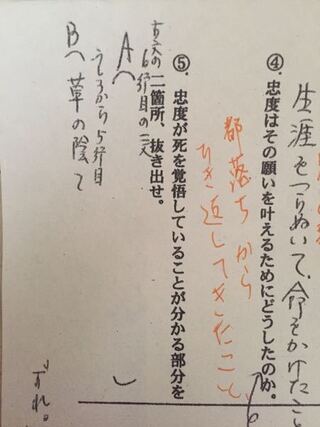 生涯をつらぬいて、命をかけたこと
④. 忠度はその願いを叶えるためにどうしたのか。
都落ちから
ひき返してきたこと。
⑤. 忠度が死を覚悟していることが分かる部分を
二箇所、抜き出せ。
古文の
6行目の二文
A へ
うしろから5行目
B へ 草の陰て
ずれ。